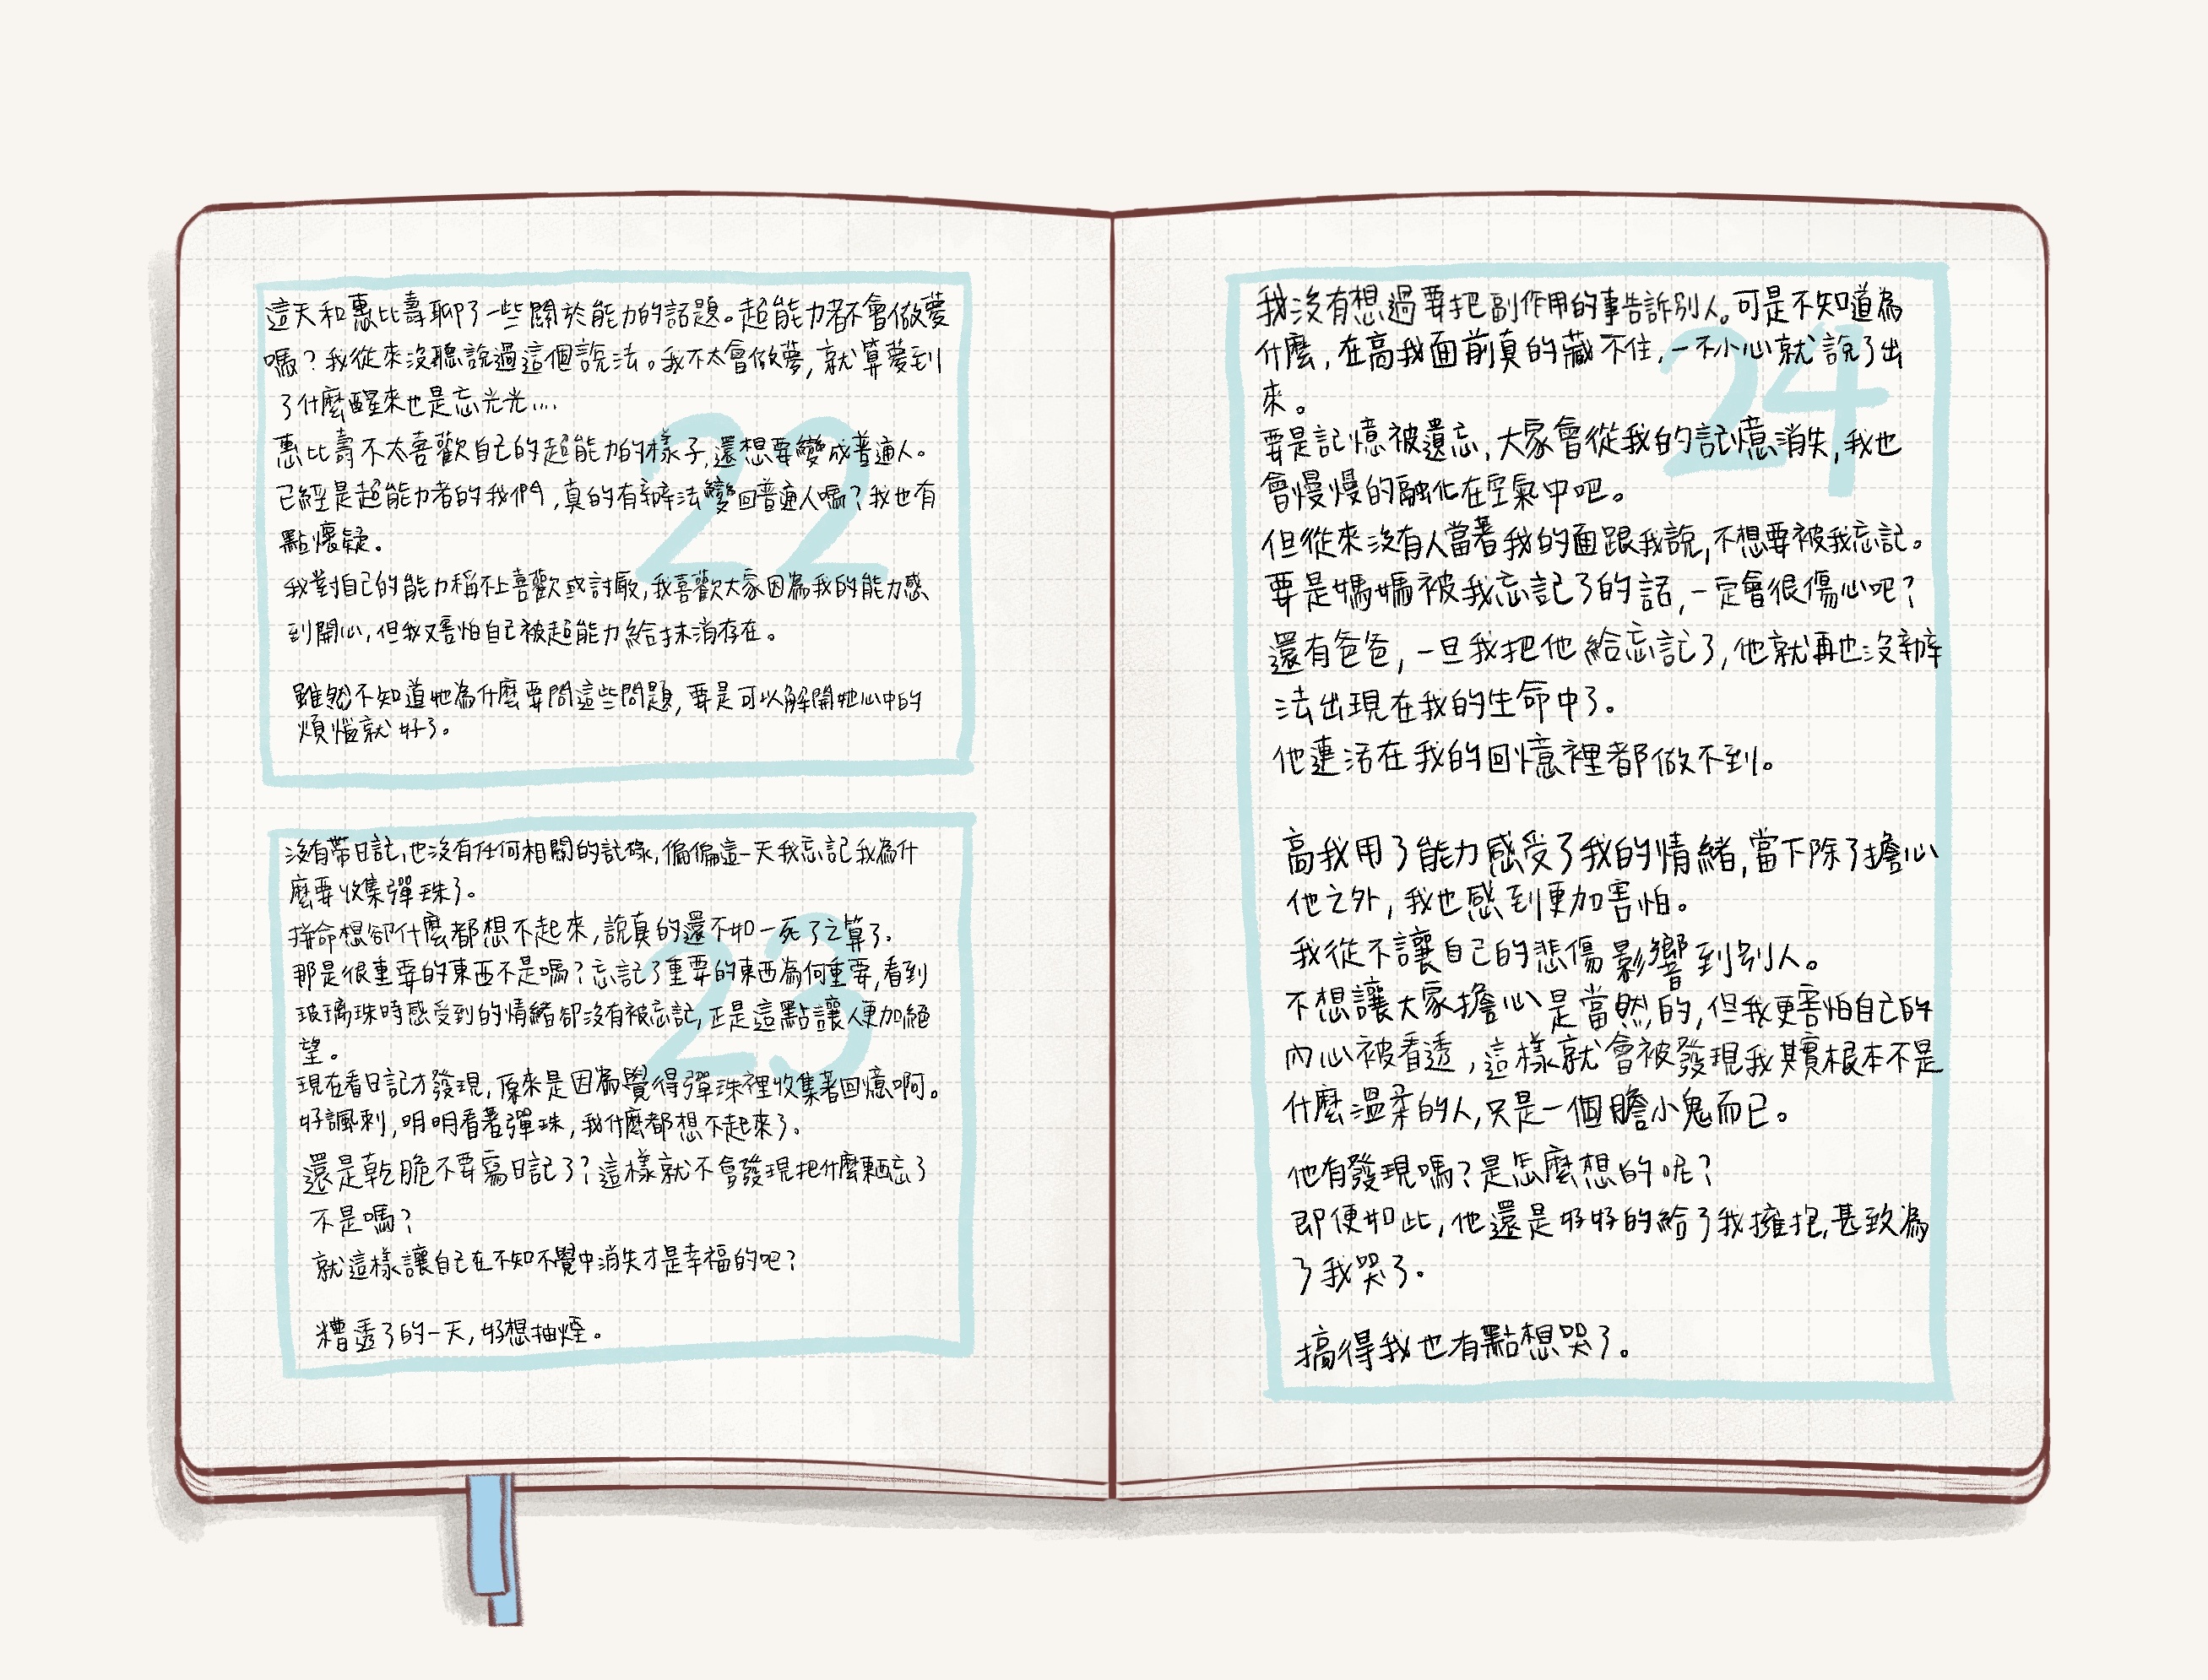 22
這天和惠比壽聊了一些關於能力的話題。超能力者不會做夢
嗎？我從來沒聽說過這個說法。我不太會做夢，就算夢到
了什麼醒來也是忘光光…
惠比壽不太喜歡自己的超能力的樣子，還想要變成普通人。
已經是超能力者的我們，真的有辦法變回普通人嗎？我也有
點懷疑。
我對自己的能力稱不上喜歡或討厭，我喜歡大家因為我的能力感
到開心，但我又害怕自己被超能力給抹消存在。
雖然不知道牠為什麼要問這些問題，要是可以解開牠心中的
煩惱就好了。
23
沒有帶日記，也沒有任何相關的記錄，偏偏這一天我忘記我為什
麼要收集彈珠了。
拚命想卻什麼都想不起來，說真的還不如一死了之算了。
那是很重要的東西不是嗎？忘記了重要的東西為何重要，看到
玻璃珠時感受到的情緒卻沒有被忘記，正是這點讓人更加絕
望。
現在看日記才發現，原來是因為覺得彈珠裡收集著回憶啊。
好諷刺，明明看著彈珠，我什麼都想不起來了。
還是乾脆不要寫日記了？這樣就不會發現把什麼東西忘了
不是嗎？
就這樣讓自己在不知不覺中消失才是幸福的吧？
糟透了的一天，好想抽煙。
24
我沒有想過要把副作用的事告訴別人。可是不知道為
什麼，在高我面前真的藏不住，一不小心就說了出
來。
要是記憶被遺忘，大家會從我的記憶消失，我也
會慢慢的融化在空氣中吧。
但從來沒有人當著我的面跟我說，不想要被我忘記。
要是媽媽被我忘記了的話，一定會很傷心吧？
還有爸爸，一旦我把他給忘記了，他就再也沒辦
法出現在我的生命中了。
他連活在我的回憶裡都做不到。
高我用了能力感受了我的情緒，當下除了擔心
他之外，我也感到更加害怕。
我從不讓自己的悲傷影響到別人。
不想讓大家擔心是當然的，但我更害怕自己的
內心被看透，這樣就會被發現我其實根本不是
什麼溫柔的人，只是一個膽小鬼而已。
他有發現嗎？是怎麼想的呢？
即便如此，他還是好好的給了我擁抱，甚致為
了我哭了。
搞得我也有點想哭了。